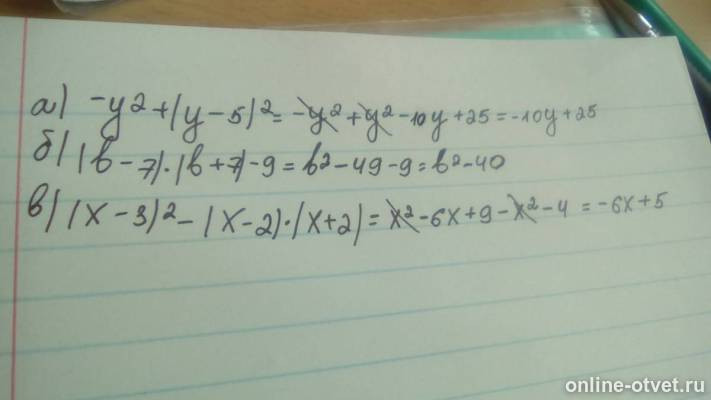 а) -y²+(y-5)²=-y²+y²-10y+25=-10y+25
б) (b-7)·(b+7)-9=b²-49-9=b²-40
в) (x-3)²-(x-2)·(x+2)=x²-6x+9-x²-4=-6x+5
online-otvet.ru